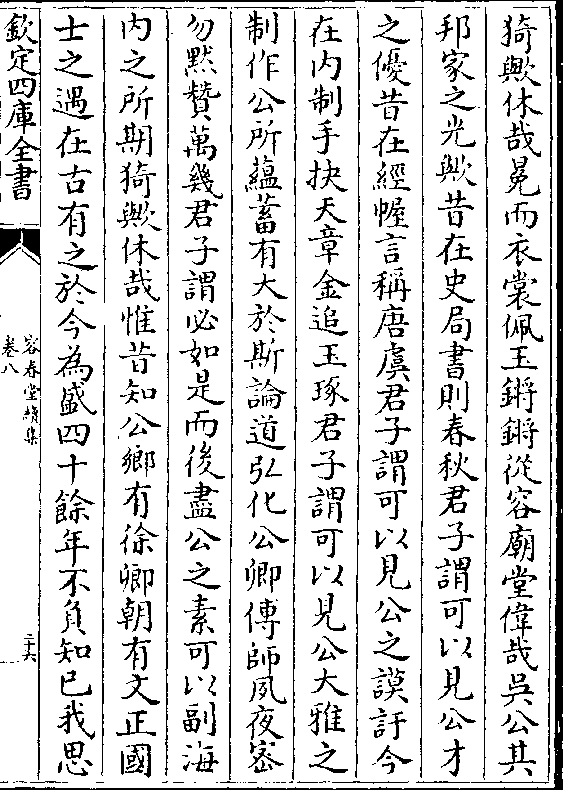 猗歟休哉冕而衣裳佩玉鏘鏘從容廟堂偉哉吳公其
邦家之光歟昔在史局書則春秋君子謂可以見公才
之優昔在經幄言稱唐虞君子謂可以見公之謨訏今
在内制手抉天章金追玉琢君子謂可以見公大雅之
制作公所蘊蓄有大於斯論道弘化公卿傅師夙夜宻
勿黙賛萬幾君子謂必如是而後盡公之素可以副海
内之所期猗歟休哉惟昔知公鄉有徐卿朝有文正國
士之遇在古有之於今為盛四十餘年不負知已我思
欽定四庫全書
容春堂續集
卷八
二十六